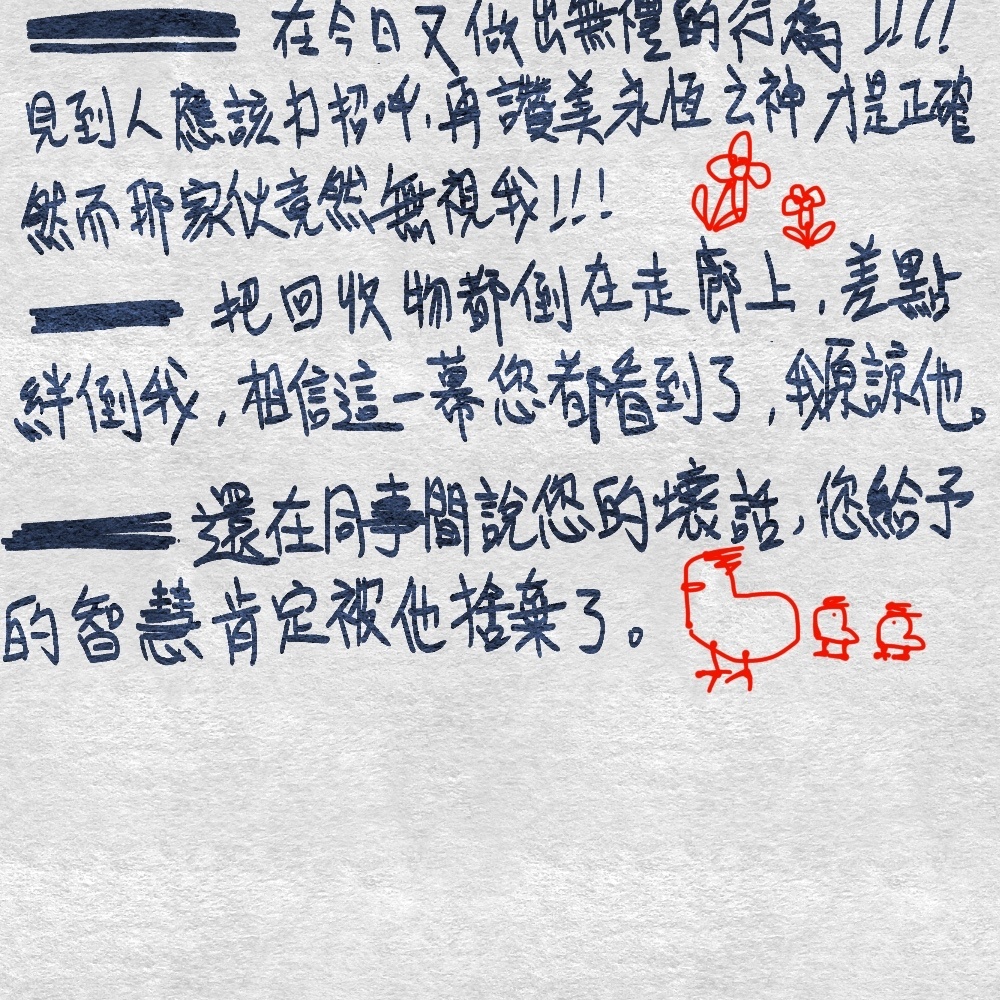 在今日又做出無禮的行為!!!
見到人應該打招呼,再讚美永恆之神才是正確
然而那家伙竟然無視我!!!
把回收物都倒在走廊上,差點
絆倒我,相信這一幕您都看到了,我原諒他。
還在同事間說您的壞話,您給予
的智慧肯定被他捨棄了。